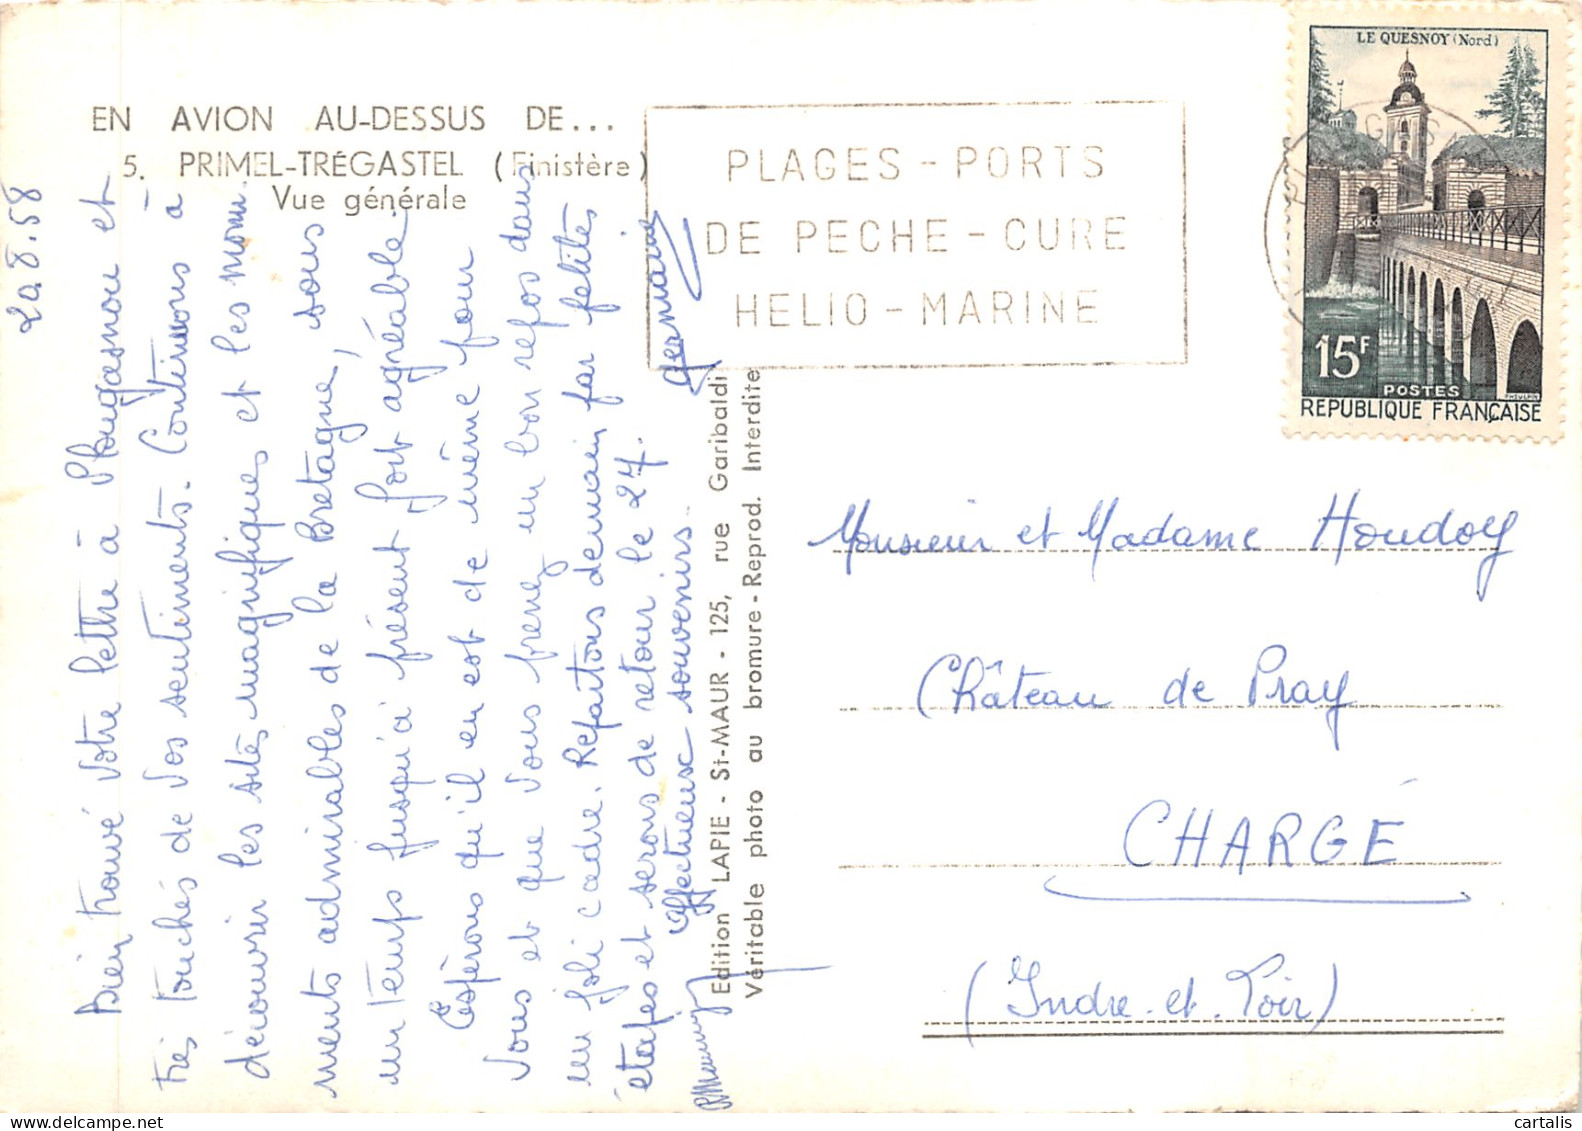 EN AVION AU-DESSUS DE...
5. PRIMEL-TRÉGASTEL (Finistère)
Vue générale
PLAGES - PORTS
DE PECHE - CURE
HELIO - MARINE
LE QUESNOY (Nord)
15F
POSTES
REPUBLIQUE FRANÇAISE
8.58
Bien trouvé votre lettre à Plougasnou et
très touchés de vos sentiments. Continuons à
découvrir les sites magnifiques et les monu
ments admirables de la Bretagne, sous
un temps jusqu'à présent fort agréable
Espérons qu'il en est de même pour
vous et que vous prenez un bon repos dans
un joli cadre. Repartons demain par petites
étapes et serons de retour le 27.
Affectueux souvenirs.
Germaine
Edition LAPIE - St-MAUR - 125, rue Garibaldi
Véritable photo au bromure - Reprod. Interdite
Monsieur et Madame Houdoy
Château de Pray
CHARGÉ
(Indre-et-Loir)
cartalis